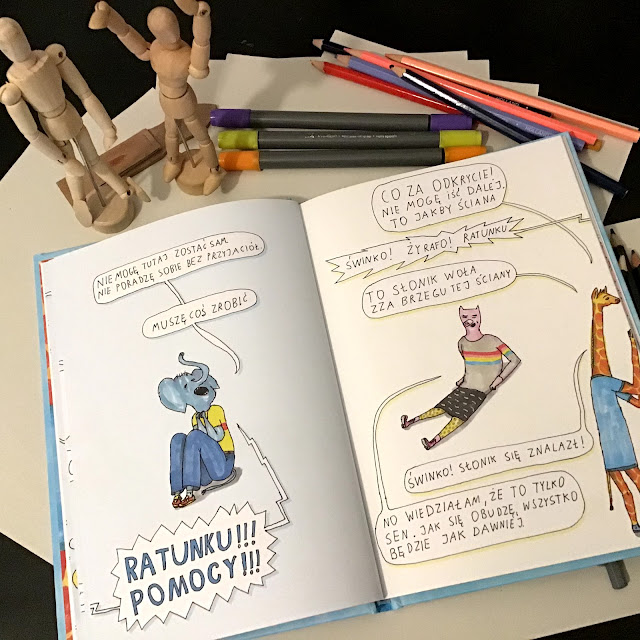 NIE MOGĘ TUTAJ ZOSTAĆ SAM
NIE PORADZĘ SOBIE BEZ PRZYJACIÓŁ
MUSZĘ COŚ ZROBIĆ
RATUNKU!!!
POMOCY!!!
CO ZA ODKRYCIE!
NIE MOGĘ IŚĆ DALEJ,
TO JAKBY ŚCIANA
ŚWINKO! ŻYRAFO! RATUNKU
TO SŁONIK WOŁA
ZZA BRZEGU TEJ ŚCIANY
ŚWINKO! SŁONIK SIĘ ZNALAZŁ!
NO WIEDZIAŁAM, ŻE TO TYLKO
SEN. JAK SIĘ OBUDZĘ, WSZYSTKO
BĘDZIE JAK DAWNIEJ